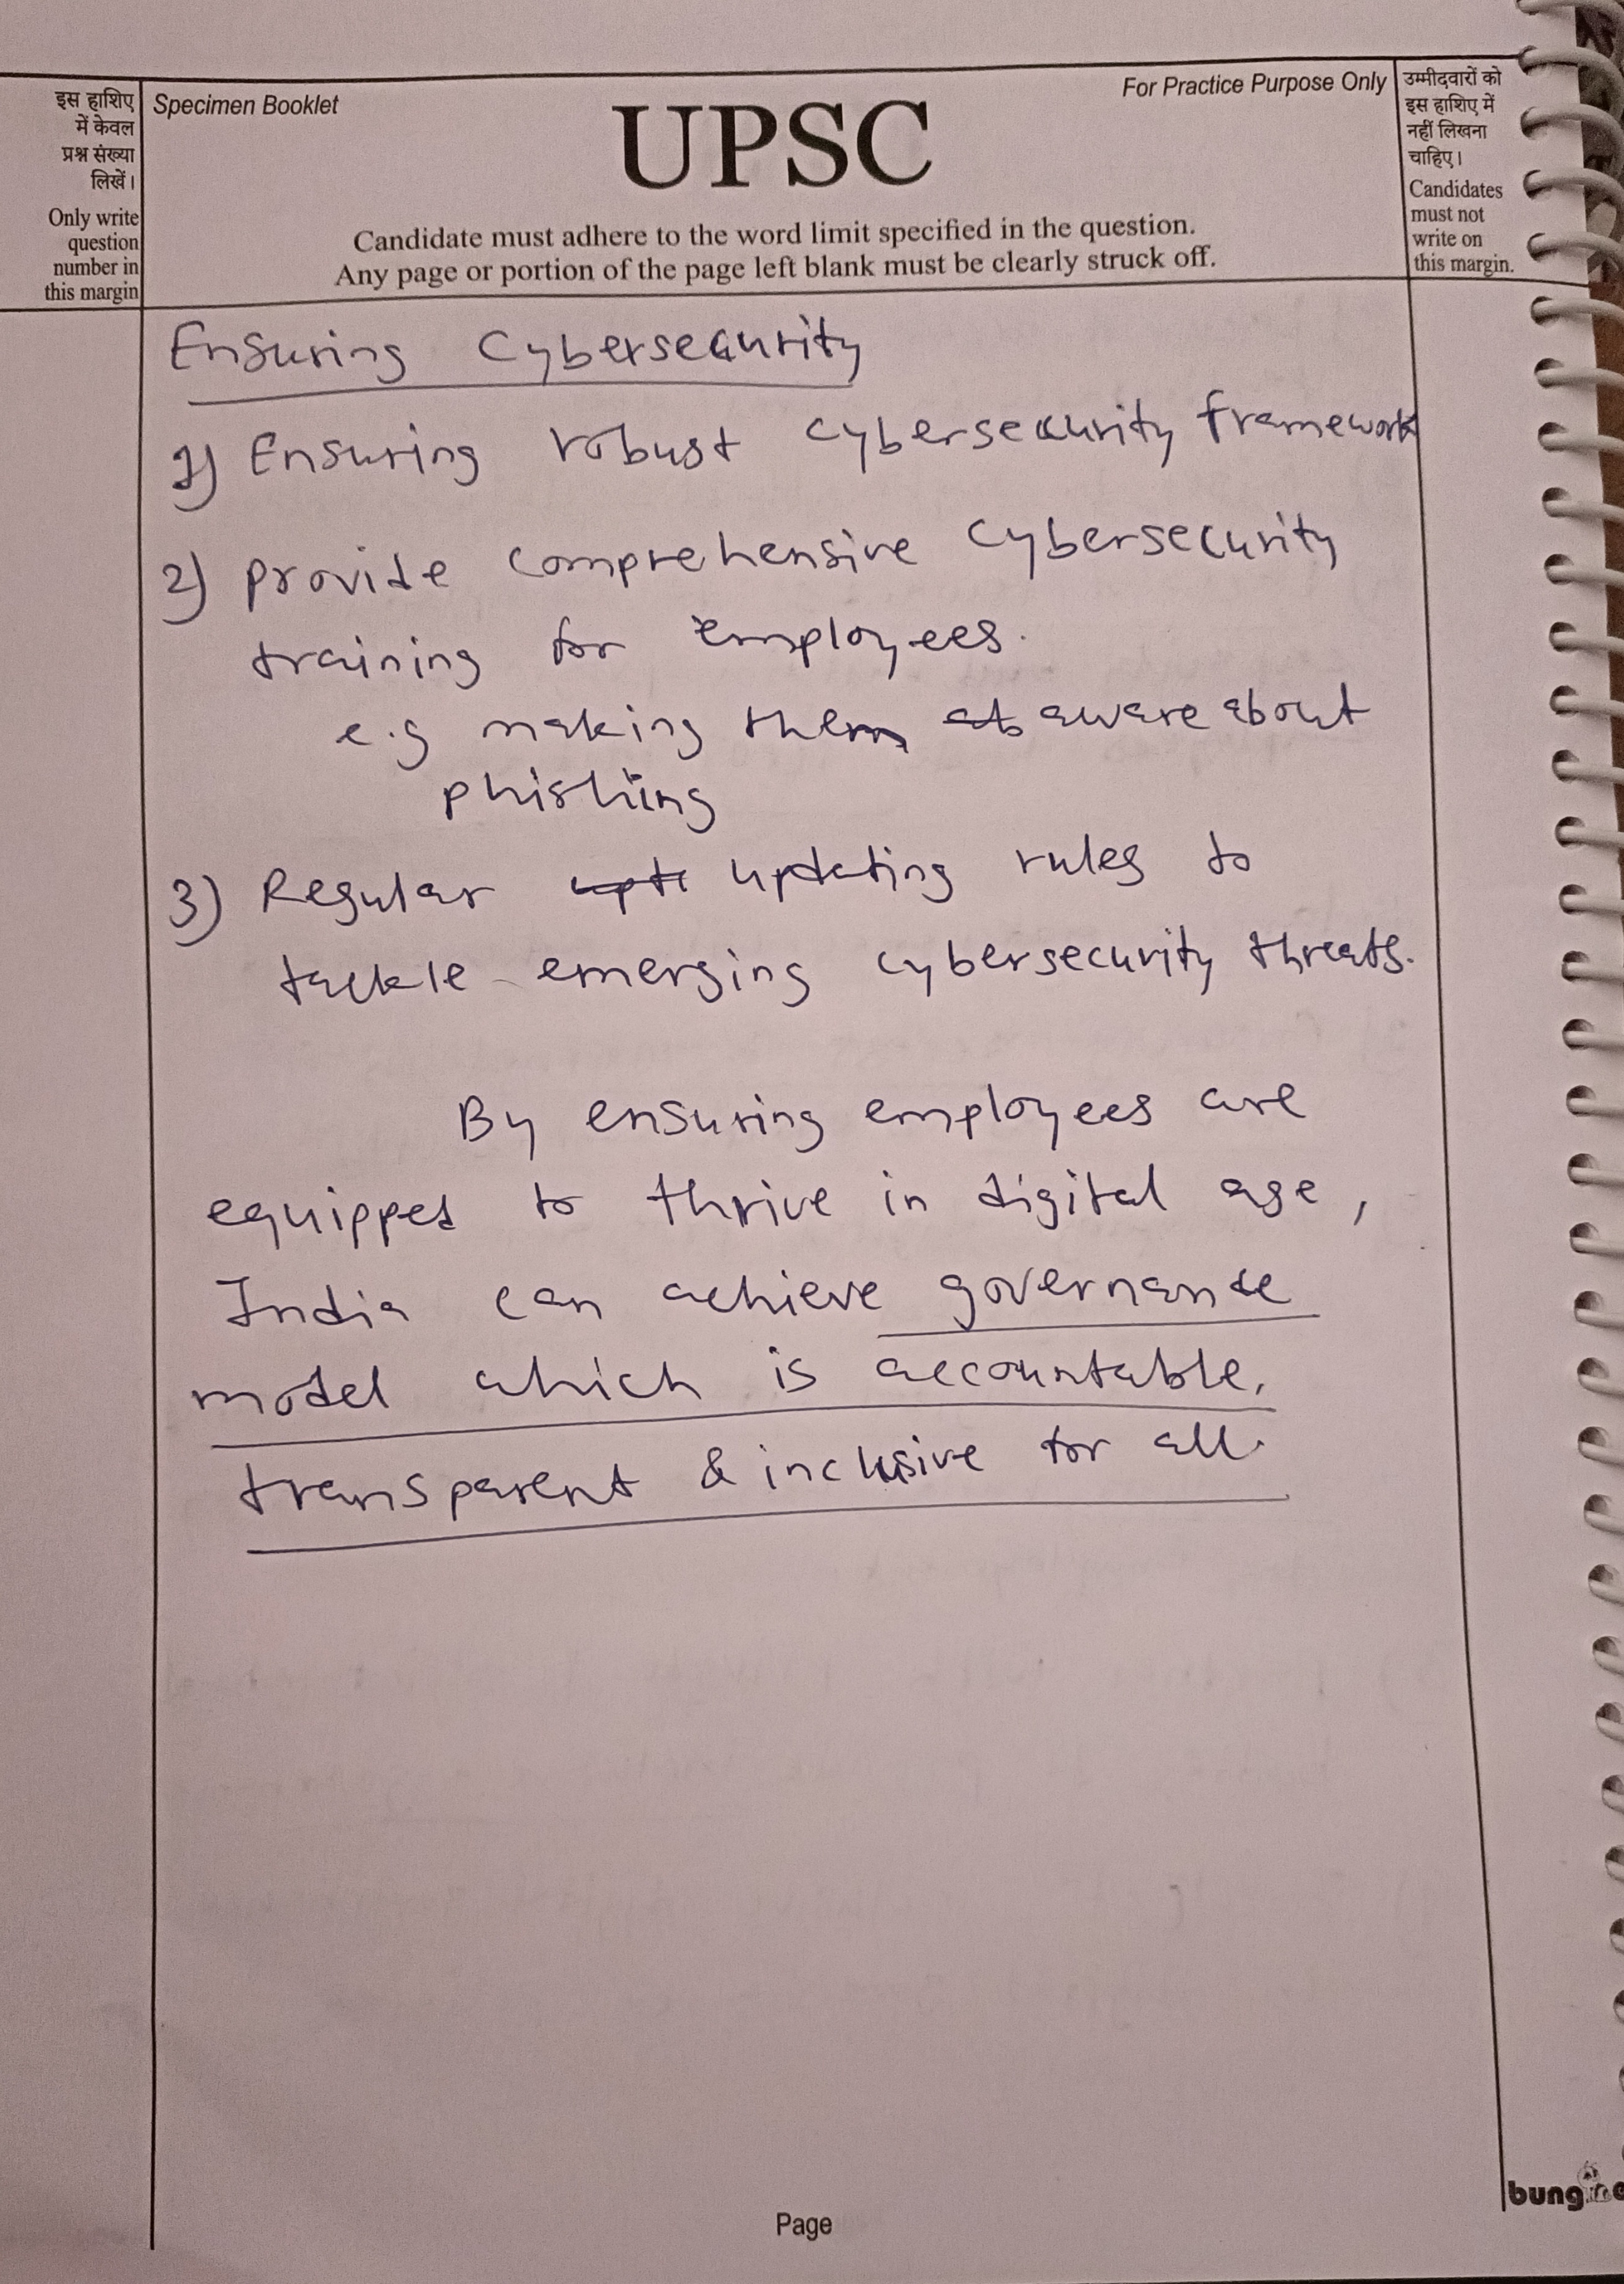 इस हाशिए
में केवल
प्रश्न संख्या
लिखें।
Only write
question
number in
this margin
Specimen Booklet
UPSC
For Practice Purpose Only
Candidate must adhere to the word limit specified in the question.
Any page or portion of the page left blank must be clearly struck off.
उम्मीदवारों को
इस हाशिए में
नहीं लिखना
चाहिए।
Candidates
must not
write on
this margin.
Ensuring Cybersecurity
1) Ensuring robust cybersecurity framework
2) provide comprehensive cybersecurity
training for employees.
e.g making them aware about
phishing
3) Regular updating rules to
tackle emerging cybersecurity threats.
By ensuring employees are
equipped to thrive in digital age,
India can achieve governance
model which is accountable,
transparent & inclusive for all.
Page